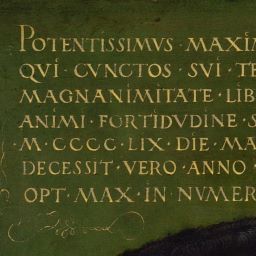 POTENTISSIMUS · MAXIM
QVI · CVNCTOS · SVI · TE
MAGNANIMITATE · LIB
ANIMI · FORTIDVDINE · S
M · CCCC · LIX · DIE · MA
DECESSIT · VERO · ANNO ·
OPT · MAX · IN · NVMER